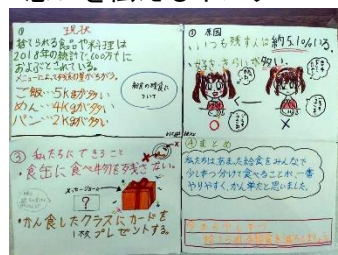 ① 現状
捨てられる食品や料理は
2018年の統計で600万tに
およぶとされている。
メニューによって残る量がちがう。
ご飯…5kgが多い
めん…4kgが多い
パン…2kgが多い
給食の残食に
ついて
② 原因
・いつも残す人は約5.10%いる。
・好ききらいが多い。
○
×
③ 私たちにできること
・食缶に食べ物を残さない。
メッセージカード
?
・かん食したクラスにカードを
1枚プレゼントする。
④ まとめ
私たちは、あまった給食をみんなで
少しずつ分けて食べることが、一番
やりやすく、かん単だと思いました。